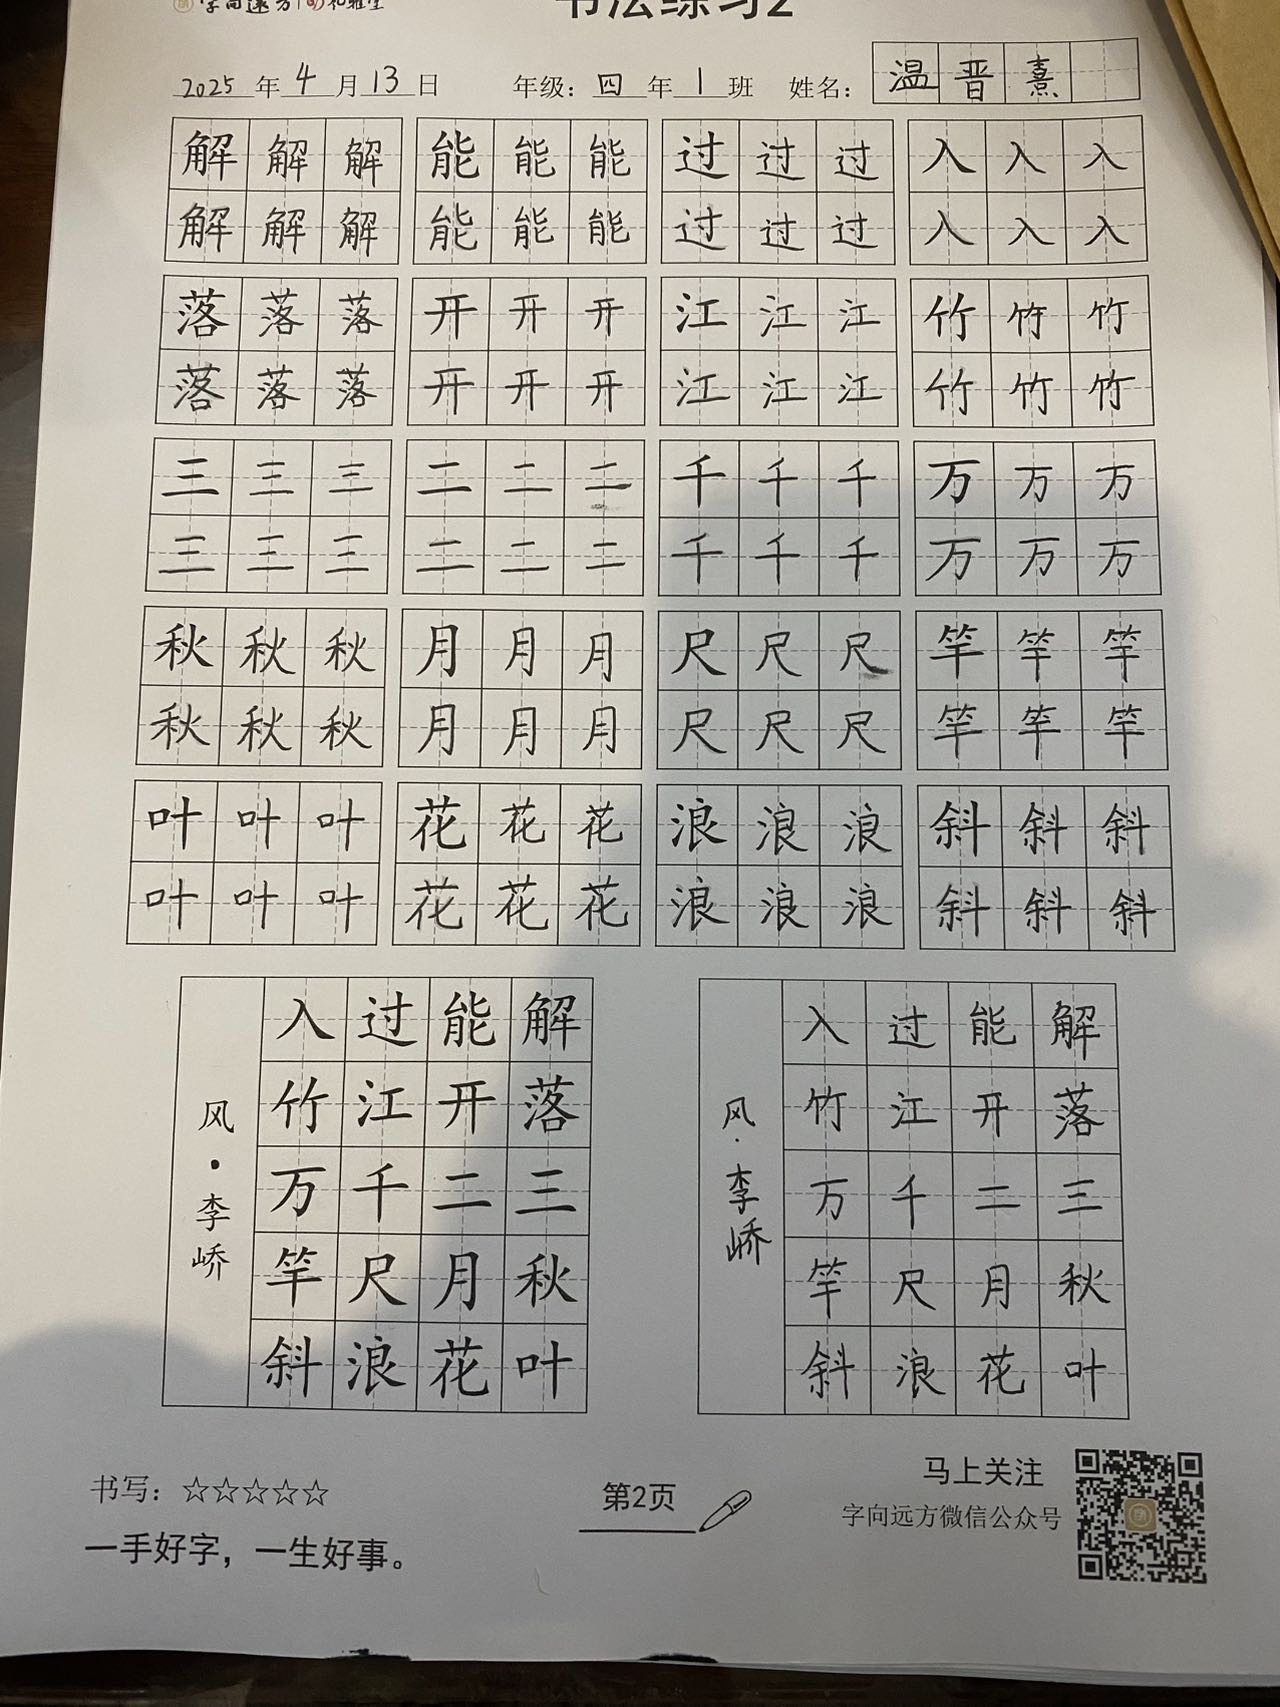 字向远方 礼雅堂
书法练习2
2025年4月13日 年级：四年1班 姓名：温晋熹
解解解 能能能 过过过 入入入
解解解 能能能 过过过 入入入
落落落 开开开 江江江 竹竹竹
落落落 开开开 江江江 竹竹竹
三三三 二二二 千千千 万万万
三三三 二二二 千千千 万万万
秋秋秋 月月月 尺尺尺 竿竿竿
秋秋秋 月月月 尺尺尺 竿竿竿
叶叶叶 花花花 浪浪浪 斜斜斜
叶叶叶 花花花 浪浪浪 斜斜斜
解落三秋叶
能开二月花
过江千尺浪
入竹万竿斜
风·李峤
解落三秋叶
能开二月花
过江千尺浪
入竹万竿斜
风·李峤
书写：☆☆☆☆☆
一手好字，一生好事。
第2页
马上关注
字向远方微信公众号